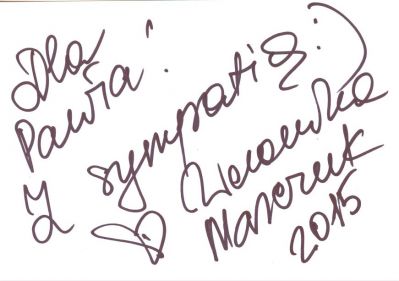 Dla
Pawła!
Z sympatią :)
Weronika
Marczuk
2015